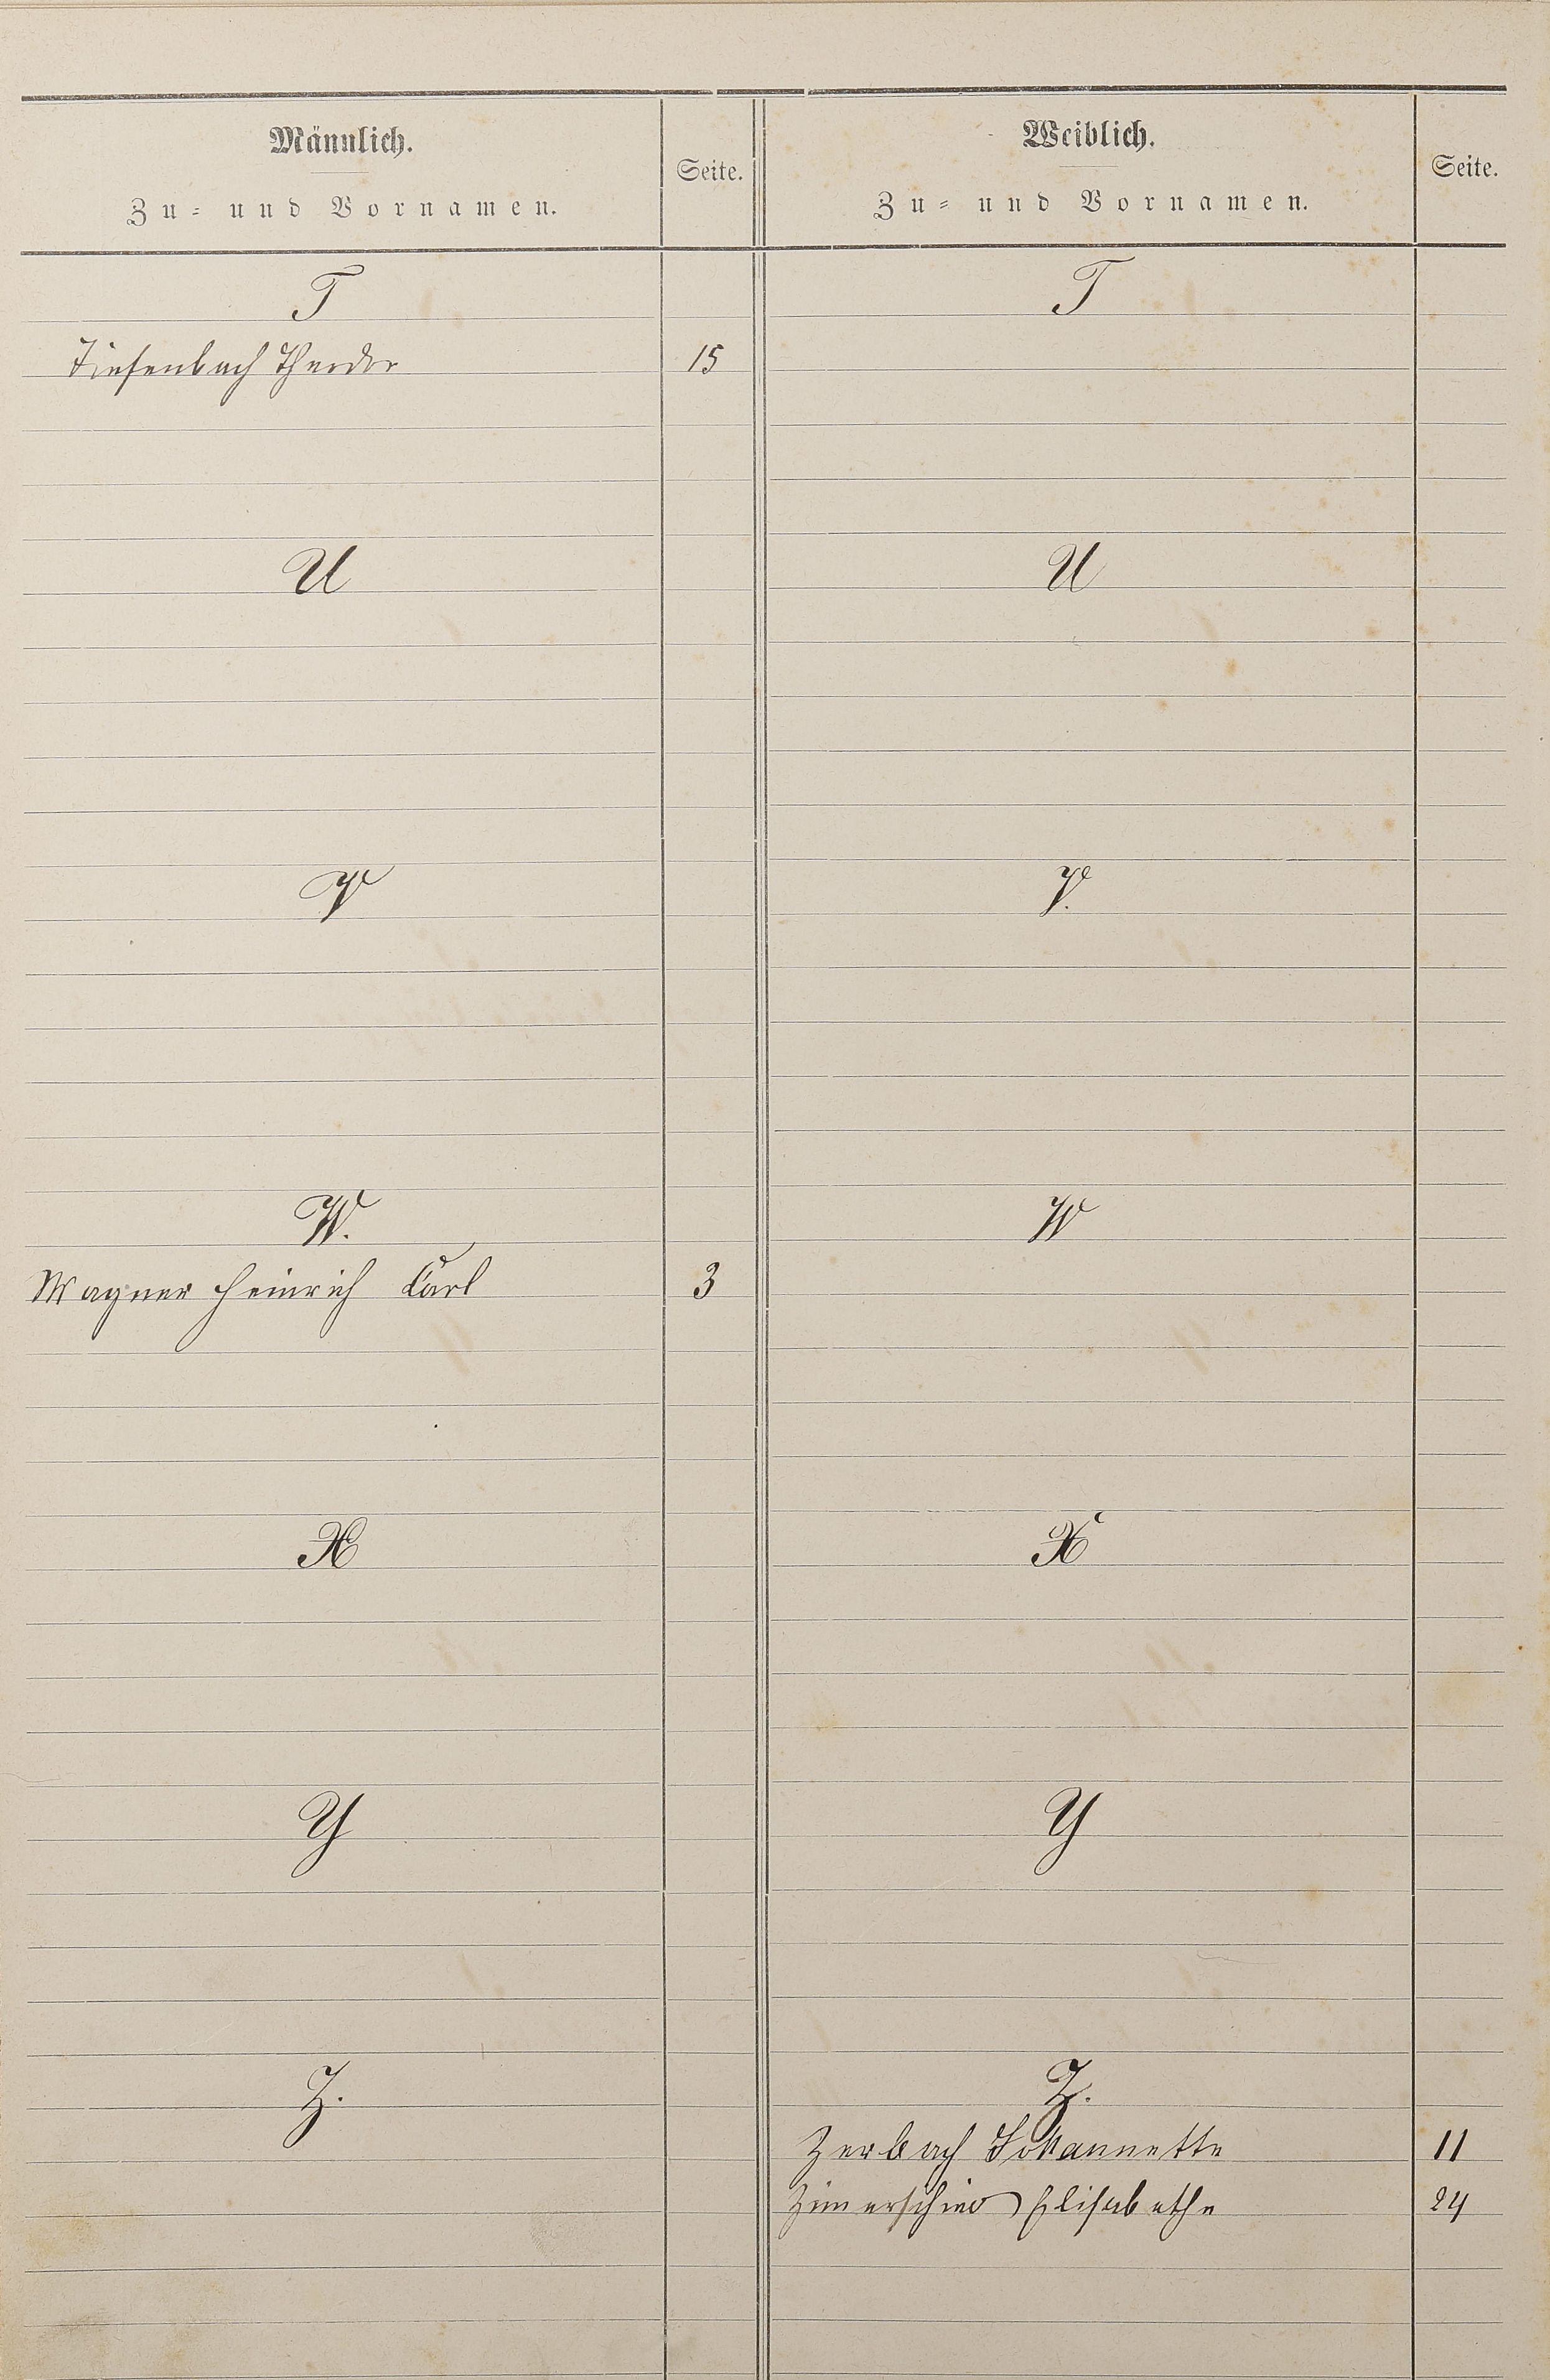 Männlich.
Zu- und Vornamen.
Seite.
Weiblich.
Zu- und Vornamen.
Seite.
T
T
Tiefenbach Theodor
15
U
U
V
V.
W.
W
Wagner Heinrich Carl
3
X
X
Y
Y
Z.
Z.
Zerbach Johannette
11
Elisabethe
24